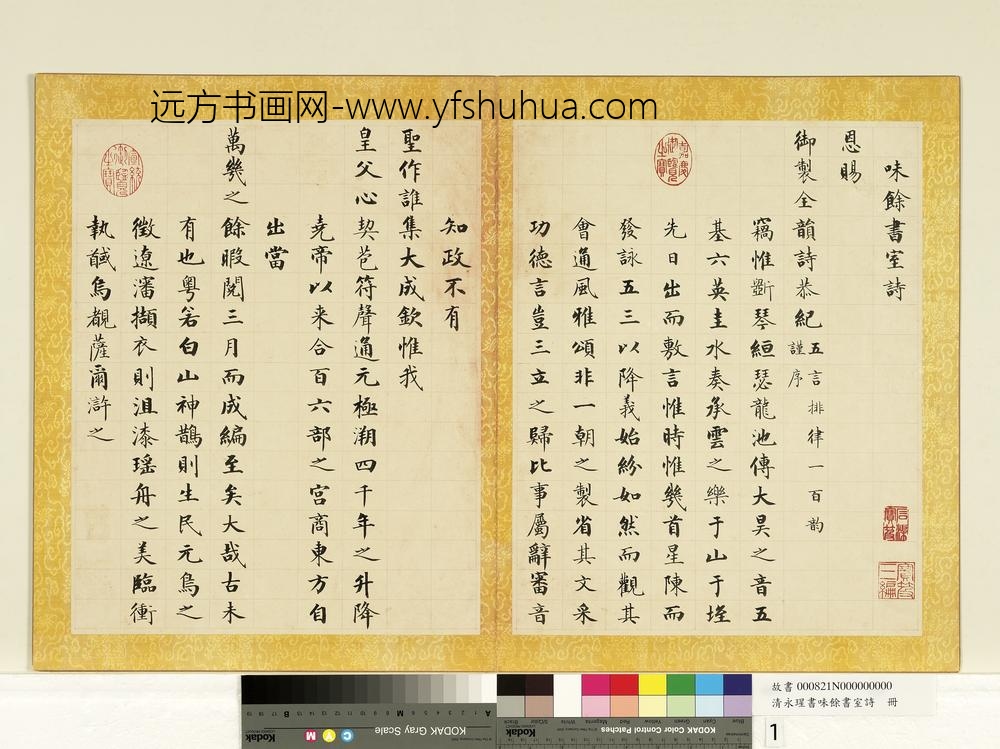 远方书画网-www.yfshuhua.com
味餘書室詩
恩賜
御製全韻詩恭紀五言排律一百韵
謹序
竊惟斲琴絙瑟龍池傳大昊之音五
基六英圭水奏承雲之樂于山于垤
先日出而敷言惟時惟幾首星陳而
發詠五三以降義始紛如然而觀其
會通風雅頌非一朝之製省其文采
功德言豈三立之歸比事屬辭審音
知政不有
聖作誰集大成欽惟我
皇父心契苞符聲通元極溯四千年之升降
堯帝以来合百六部之宮商東方自
出當
萬幾之餘暇閱三月而成編至矣大哉古未
有也粵若白山神鵲則生民元鳥之
徵遼瀋擷衣則沮漆瑶舟之美臨衝
執馘鳥覩薩爾滸之
嘉慶御覽之寶
宣統御覽之寶
石渠寶笈
寶笈三編
故書 000821N000000000
清永瑆書味餘書室詩 冊
1
KODAK Gray Scale
Kodak
C Y M
A
M
B
1 2 3 4 5 6 7 8 9 10 11 12 13 14 15 16 17 18 19
KODAK Color Control Patches
Kodak
Blue
Cyan
Green
Yellow
Red
Magenta
White
3/Color
Black